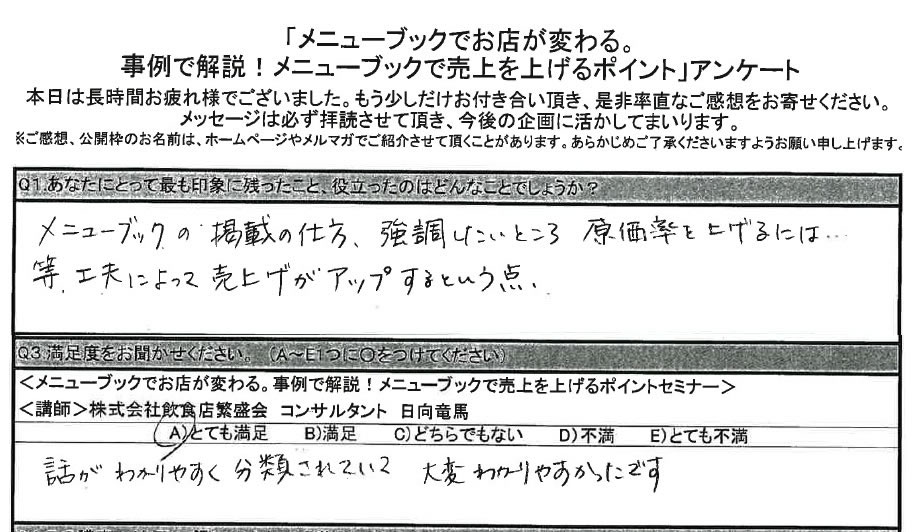 「メニューブックでお店が変わる。
事例で解説！メニューブックで売上を上げるポイント」アンケート
本日は長時間お疲れ様でございました。もう少しだけお付き合い頂き、是非率直なご感想をお寄せください。
メッセージは必ず拝読させて頂き、今後の企画に活かしてまいります。
※ご感想、公開枠のお名前は、ホームページやメルマガでご紹介させて頂くことがあります。あらかじめご了承くださいますようお願い申し上げます。
Q1.あなたにとって最も印象に残ったこと、役立ったのはどんなことでしょうか？
メニューブックの掲載の仕方、強調したいところ 原価率を上げるには…
等、工夫によって売上げがアップするという点、
Q3.満足度をお聞かせください。（A～E1つに○をつけてください）
＜メニューブックでお店が変わる。事例で解説！メニューブックで売上を上げるポイントセミナー＞
＜講師＞株式会社飲食店繁盛会 コンサルタント 日向竜馬
A)とても満足 B)満足 C)どちらでもない D)不満 E)とても不満
話がわかりやすく分類されていて 大変わかりやすかったです